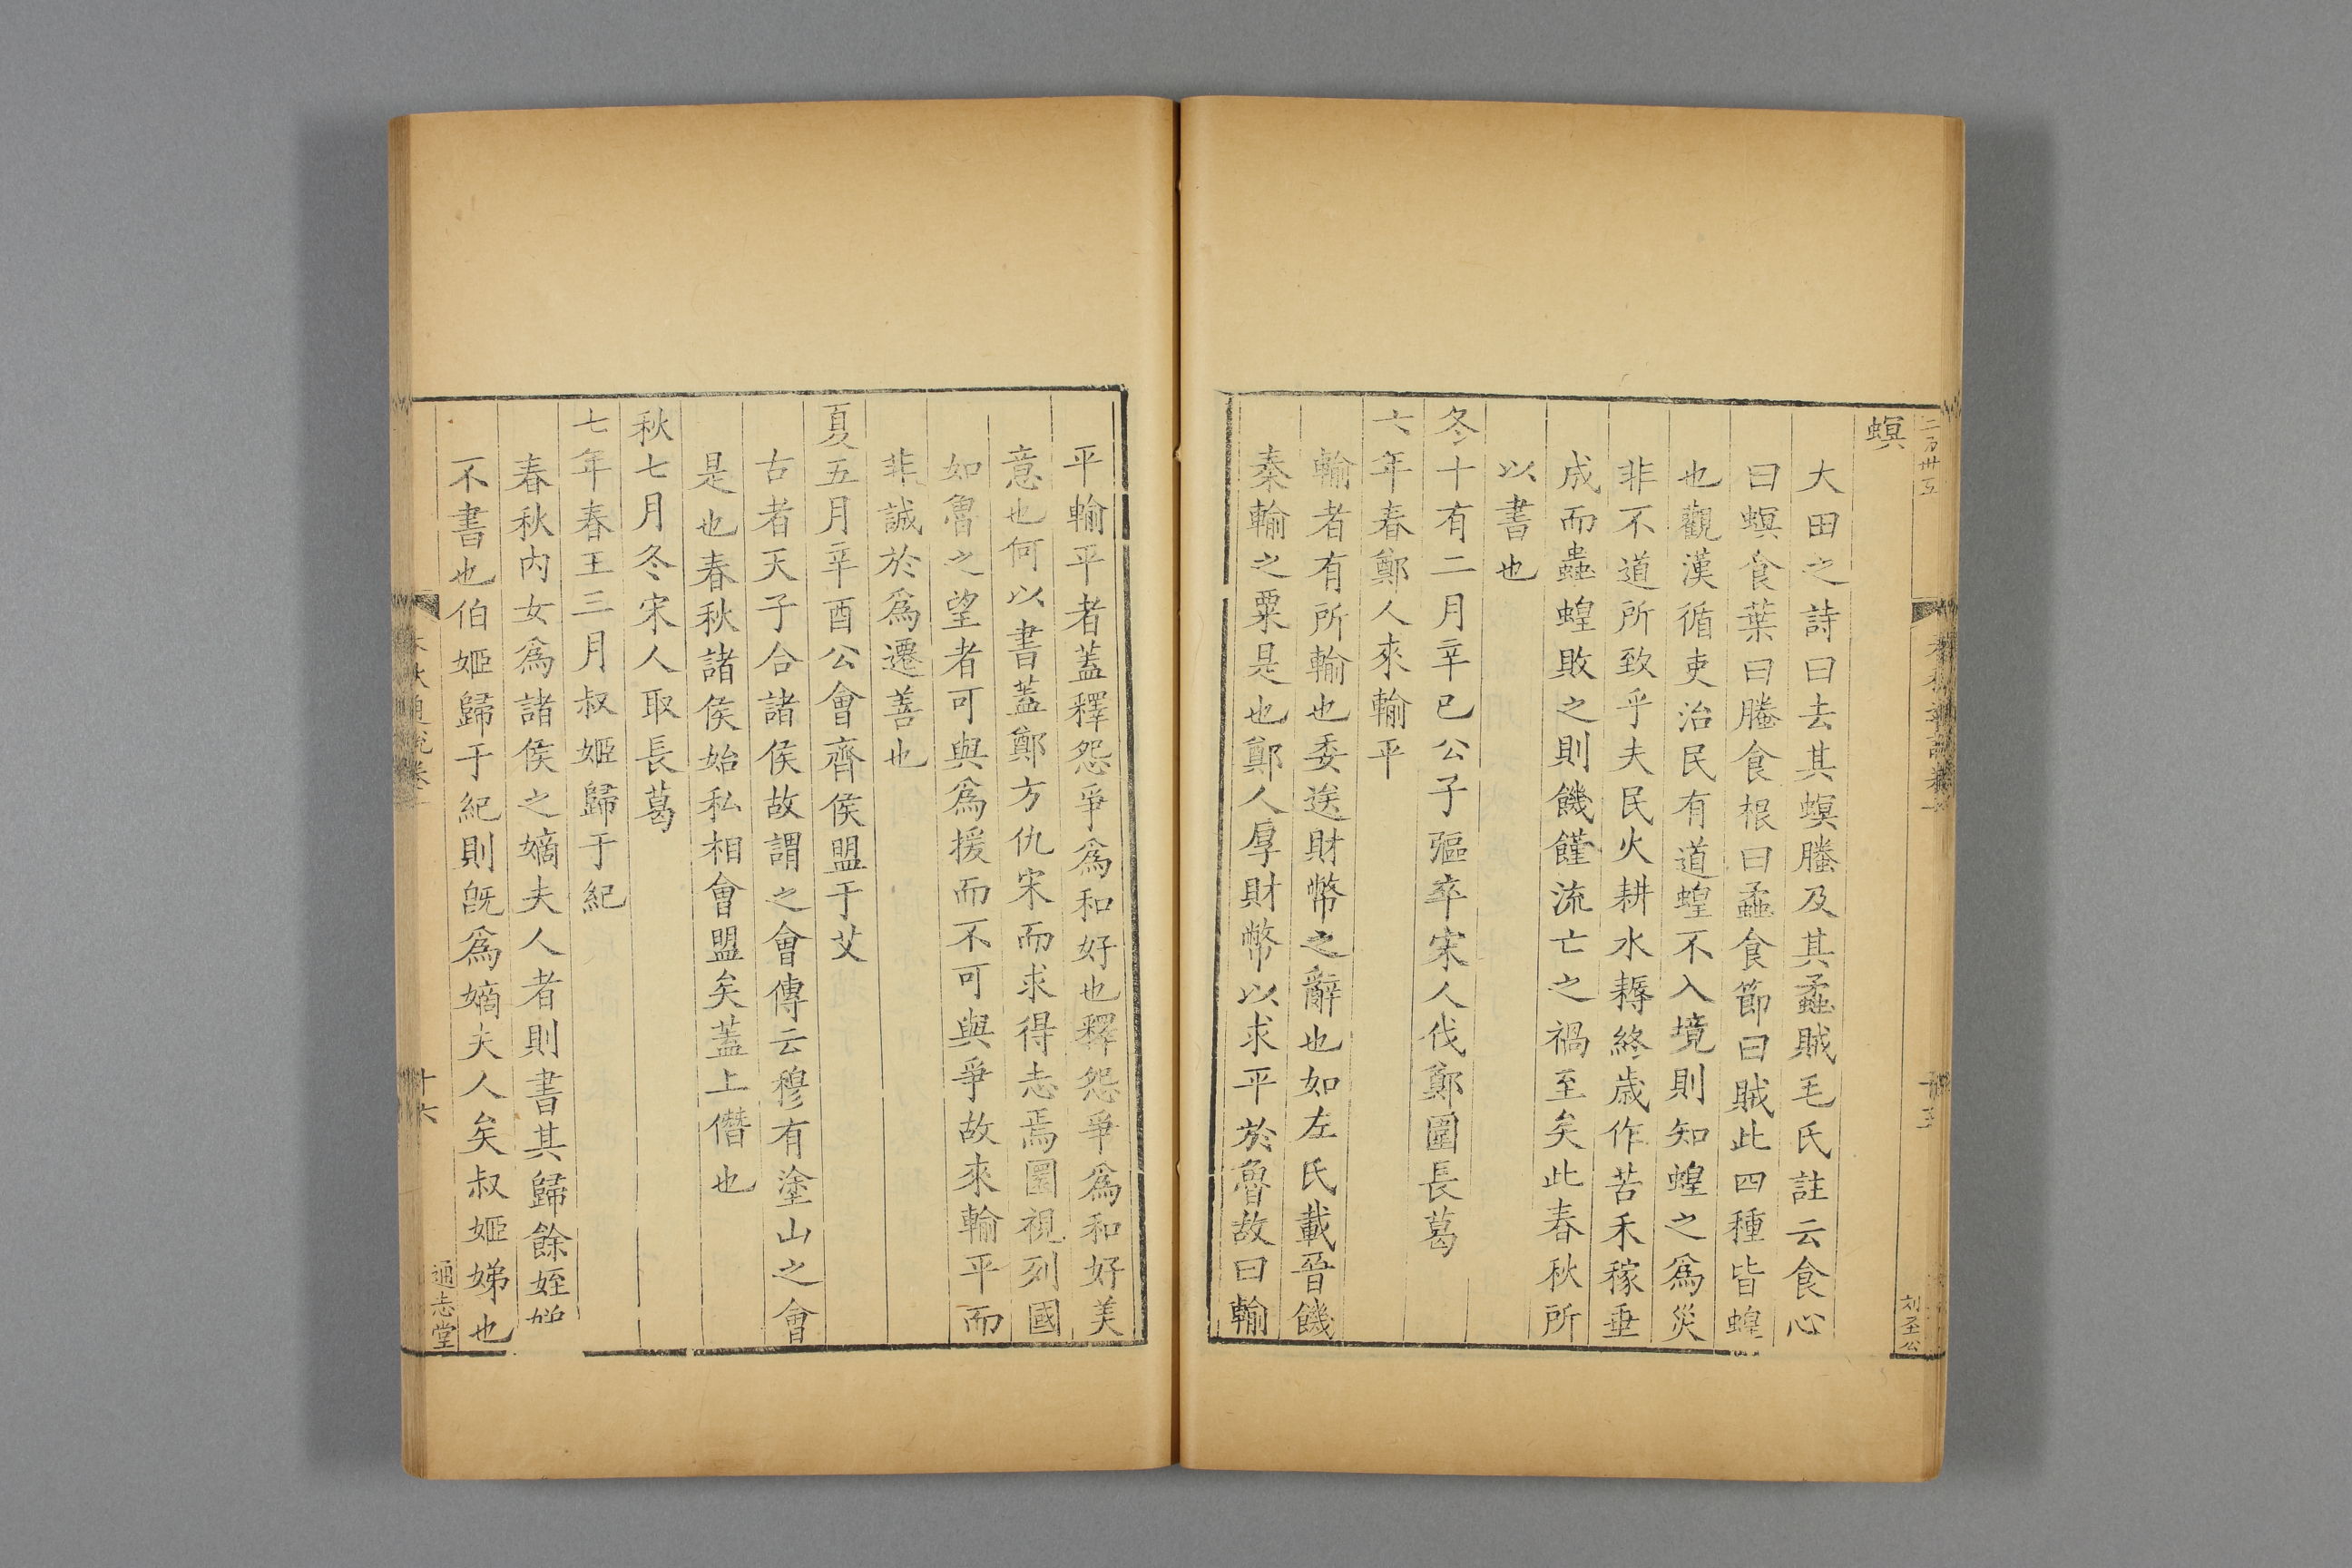 螟
大田之詩曰去其螟螣及其蟊賊毛氏註云食心
曰螟食葉曰螣食根曰蟊食節曰賊此四種皆蝗
也觀漢循吏治民有道蝗不入境則知蝗之爲災
非不道所致乎夫民火耕水耨終歲作苦禾稼垂
成而蟲蝗敗之則饑饉流亡之禍至矣此春秋所
以書也
冬十有二月辛巳公子彄卒宋人伐鄭圍長葛
六年春鄭人來輸平
輸者有所輸也委送財幣之辭也如左氏載晉饑
秦輸之粟是也鄭人厚財幣以求平於魯故曰輸
平輸平者蓋釋怨爭爲和好也釋怨爭爲和好美
意也何以書蓋鄭方仇宋而求得志焉圖視列國
如魯之望者可與爲援而不可與爭故來輸平而
非誠於爲遷善也
夏五月辛酉公會齊侯盟于艾
古者天子合諸侯故謂之會傳云穆有塗山之會
是也春秋諸侯始私相會盟矣蓋上僭也
秋七月冬宋人取長葛
七年春王三月叔姬歸于紀
春秋內女爲諸侯之嫡夫人者則書其歸餘姪娣
不書也伯姬歸于紀則旣爲嫡夫人矣叔姬娣也
十六
通志堂